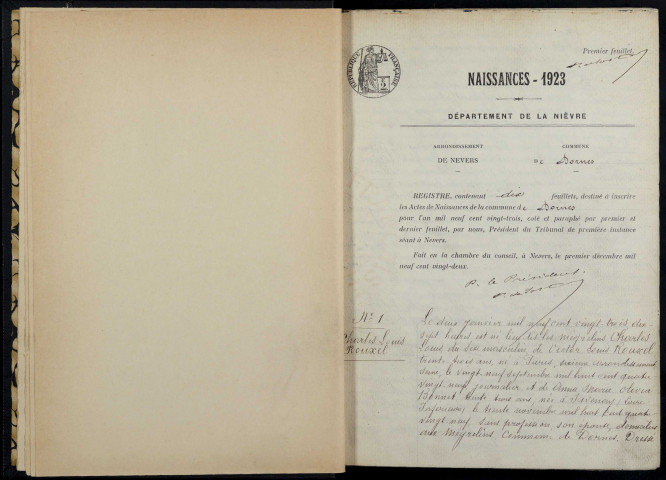 Premier feuillet.
RÉPUBLIQUE FRANÇAISE
NAISSANCES - 1923
DÉPARTEMENT DE LA NIÈVRE
ARRONDISSEMENT
COMMUNE
DE NEVERS
de Dornes
REGISTRE, contenant dix feuillets, destiné à inscrire
les Actes de Naissances de la commune de Dornes
pour l'an mil neuf cent vingt-trois, coté et paraphé par premier et
dernier feuillet, par nous, Président du Tribunal de première instance
séant à Nevers.
Fait en la chambre du conseil, à Nevers, le premier décembre mil
neuf cent vingt-deux.
P. le Président
N° 1
Charles Louis
Rouxel
Le deux janvier mil neuf cent vingt trois dix
sept heures est né Charles
Louis du sexe masculin de Victor Louis Rouxel
trente trois ans, né à Paris, arrondissement
Seine, le vingt neuf septembre mil huit cent quatre
vingt neuf journalier et de Anna Marie Olivia
Bonnet trente trois ans, née à Savenay, Loire
Inférieure, le trente novembre mil huit cent quatre
vingt neuf, sans profession, son épouse, domiciliés
aux Commune de Dornes. Dressé